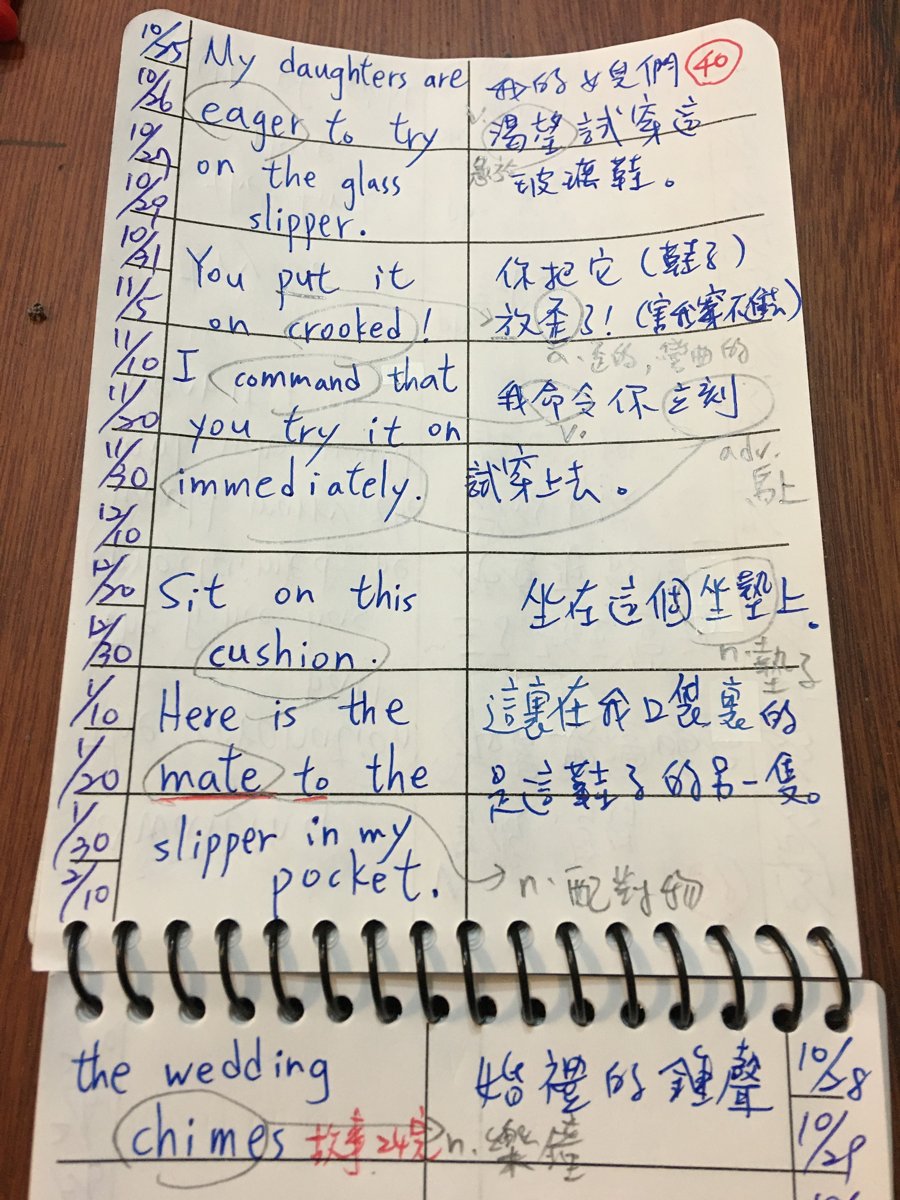 10/25
10/26
10/27
10/29
10/31
11/5
11/10
11/20
11/30
12/10
12/20
12/30
1/10
1/20
1/30
2/10
My daughters are
eager to try
on the glass
slipper.
我的女兒們
渴望試穿這
玻璃鞋。
40
v.
急於
You put it
on crooked!
你把它(鞋子)
放歪了!(害我穿不進去)
a.歪的,彎曲的
I command that
you try it on
immediately.
我命令你立刻
試穿上去。
v.
adv.
馬上
Sit on this
cushion.
坐在這個坐墊上.
n.墊子
Here is the
mate to the
slipper in my
pocket.
這裏在我口袋裏的
是這鞋子的另一隻。
n.配對物
the wedding
chimes
故事24完
婚禮的鐘聲
n.樂鐘
10/28
10/29